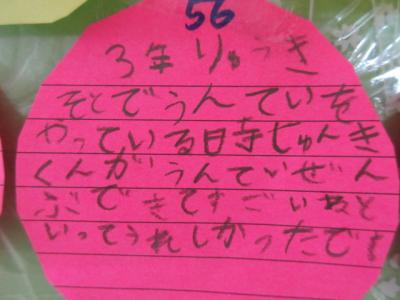 56
3年りゅうき
そとでうんていを
やっている日寺じゅんき
くんがうんていぜん
ぶできてすごいねと
いってうれしかったです